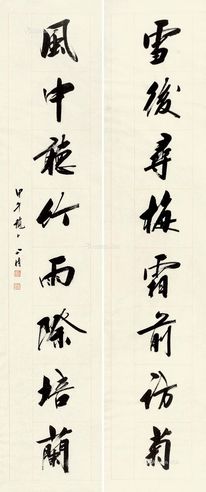 雪後尋梅霜前訪菊
風中聽竹雨際培蘭
甲午